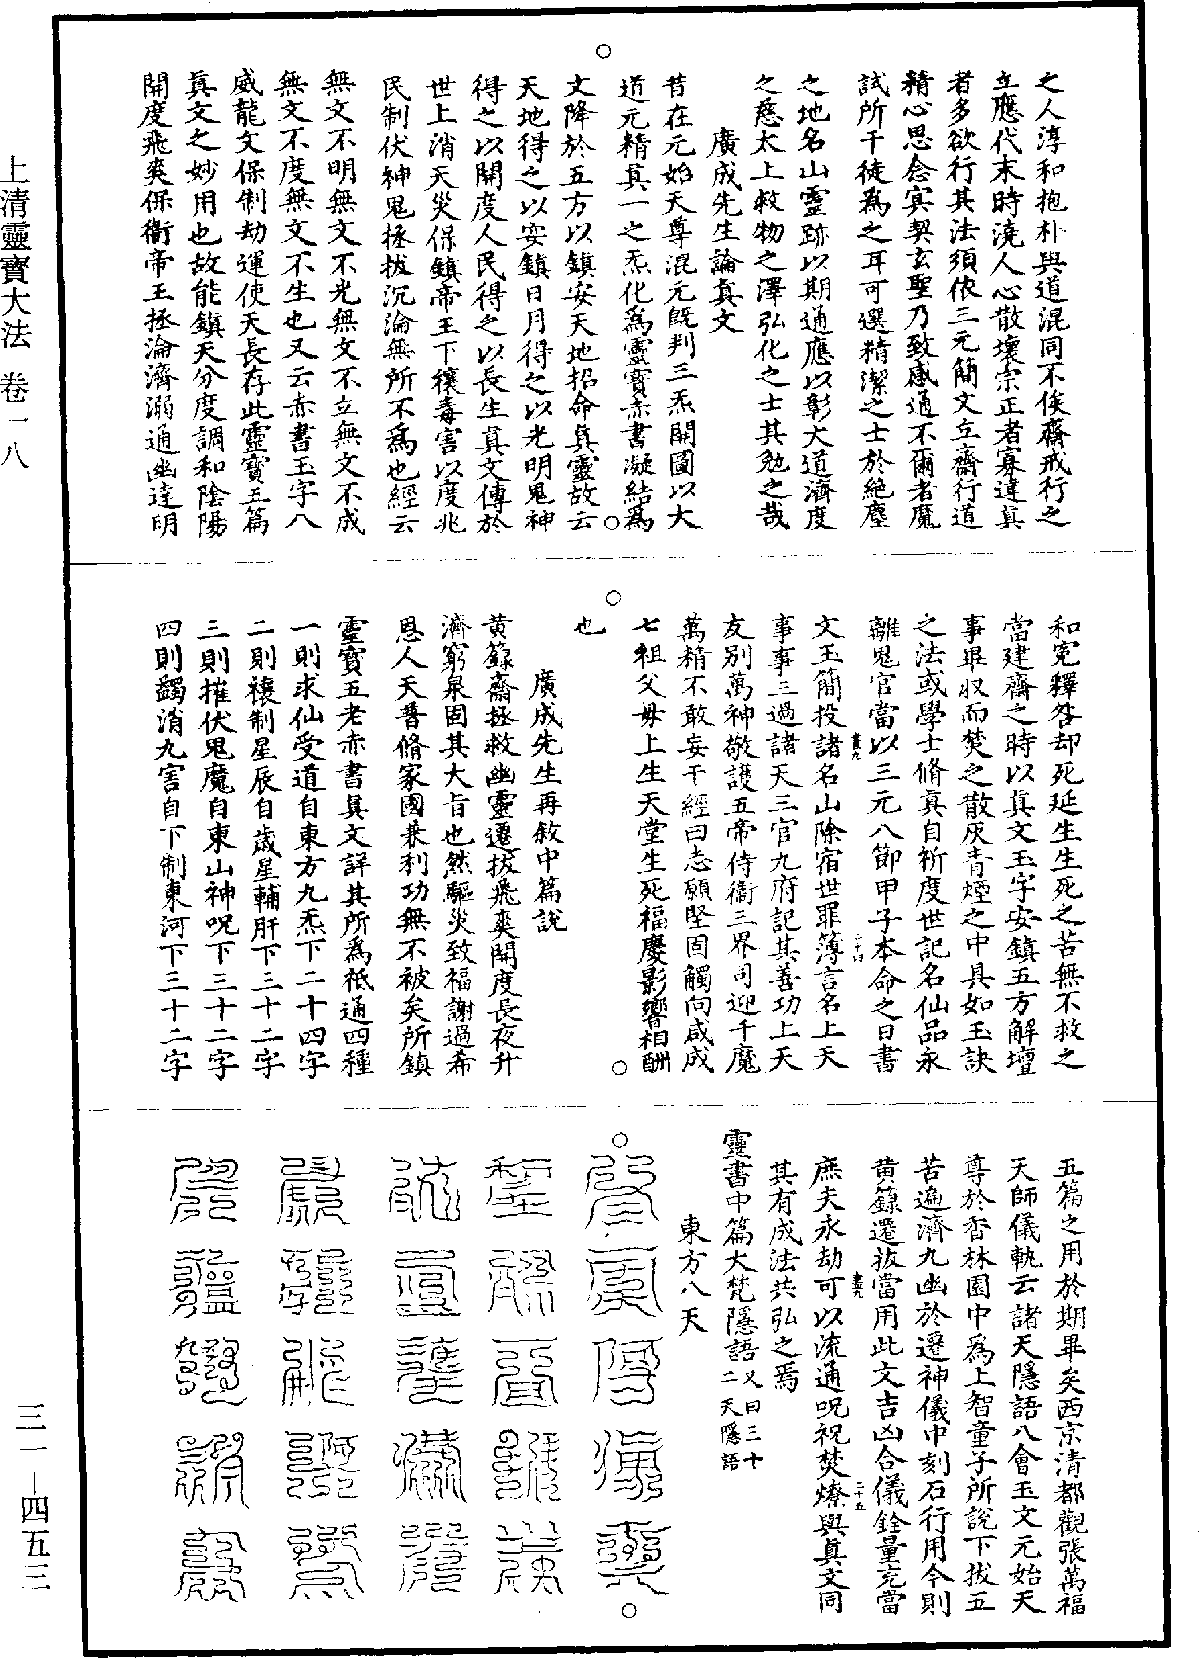 之人淳和抱朴與道混同不俟齋戒行之
立應代末時澆人心散壞崇正者寡違真
者多欲行其法須依三元簡文立齋行道
精心思念冥契玄聖乃致感通不爾者魔
試所干徒為之耳可選精潔之士於絕塵
之地名山靈跡以期通應以彰大道濟度
之慈太上救物之澤弘化之士其勉之哉
廣成先生論真文
昔在元始天尊混元既判三炁開圖以大
道元精真一之炁化為靈寶赤書凝結為
文降於五方以鎮安天地招命真靈故云
天地得之以安鎮日月得之以光明鬼神
得之以開度人民得之以長生真文傳於
世上消天災保鎮帝王下禳毒害以度兆
民制伏神鬼拯拔沉淪無所不為也經云
無文不明無文不光無文不立無文不成
無文不度無文不生也又云赤書玉字八
威龍文保制劫運使天長存此靈寶五篇
真文之妙用也故能鎮天分度調和陰陽
開度飛爽保衛帝王拯淪濟溺通幽達明
和冤釋咎却死延生生死之苦無不救之
當建齋之時以真文玉字安鎮五方解壇
事畢収而焚之散灰青煙之中具如玉訣
之法或學士脩真自祈度世記名仙品永
離鬼官當以三元八節甲子本命之日書
文玉簡投諸名山除宿世罪簿言名上天
事事三過諸天三官九府記其善功上天
友別萬神敬護五帝侍衛三界司迎千魔
萬精不敢妄干經曰志願堅固觸向咸成
七祖父母上生天堂生死福慶影響相酬
也
廣成先生再敘中篇說
黃籙齋拯救幽靈遷拔飛爽開度長夜升
濟窮泉固其大旨也然驅災致福謝過希
恩人天普脩家國兼利功無不被矣所鎮
靈寶五老赤書真文詳其所為祇通四種
一則求仙受道自東方九炁下二十四字
二則禳制星辰自歲星輔肝下三十二字
三則摧伏鬼魔自東山神呪下三十二字
四則蠲消九害自下制東河下三十二字
五篇之用於期畢矣西京清都觀張萬福
天師儀軌云諸天隱語八會玉文元始天
尊於香林園中為上智童子所說下拔五
苦遍濟九幽於遷神儀中刻石行用今則
黃籙遷拔當用此文吉凶合儀銓量克當
庶夫永劫可以流通呪祝焚燎與真文同
其有成法共弘之焉
靈書中篇大梵隱語又曰三十二天隱語
東方八天
上清靈寶大法　卷一八
三一—四五三